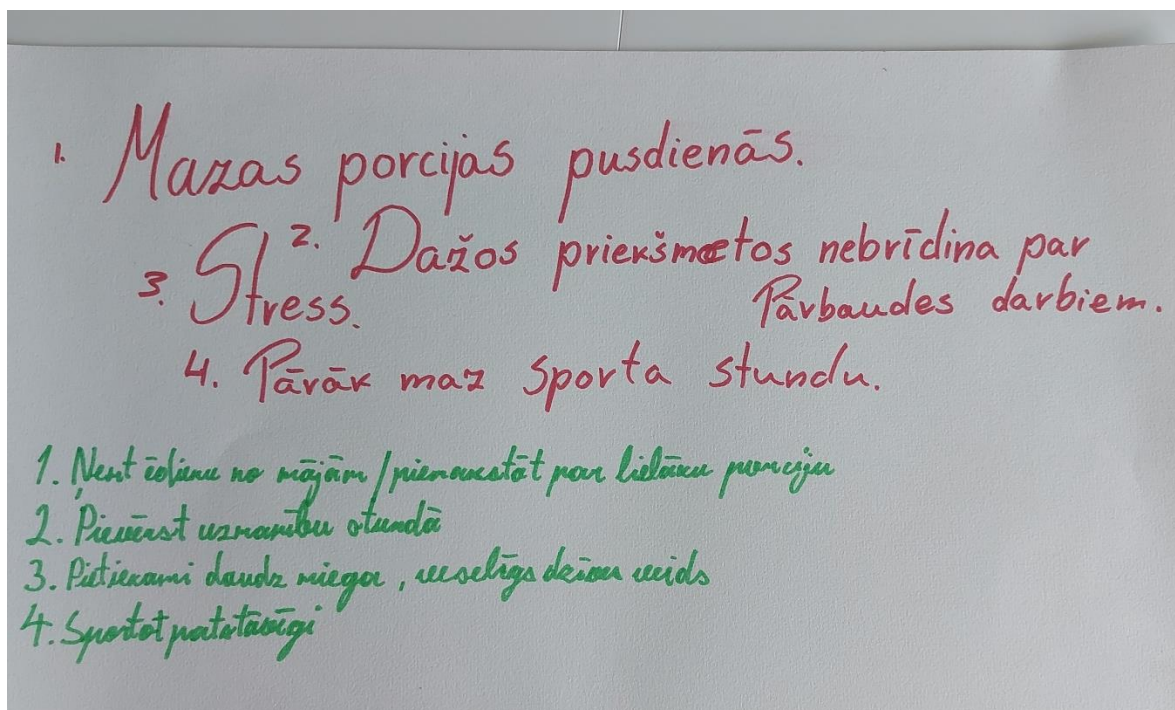 1. Mazas porcijas pusdienās.
2. Dažos priekšmetos nebrīdina par
Pārbaudes darbiem.
3. Stress.
4. Pārāk maz sporta stundu.
1. Ņemt ēdienu no mājām / pierakstāt par lielāku porciju
2. Pievērst uzmanību stundā
3. Pietiekami daudz miega, veselīgs dzīves veids
4. Sportot patstāvīgi